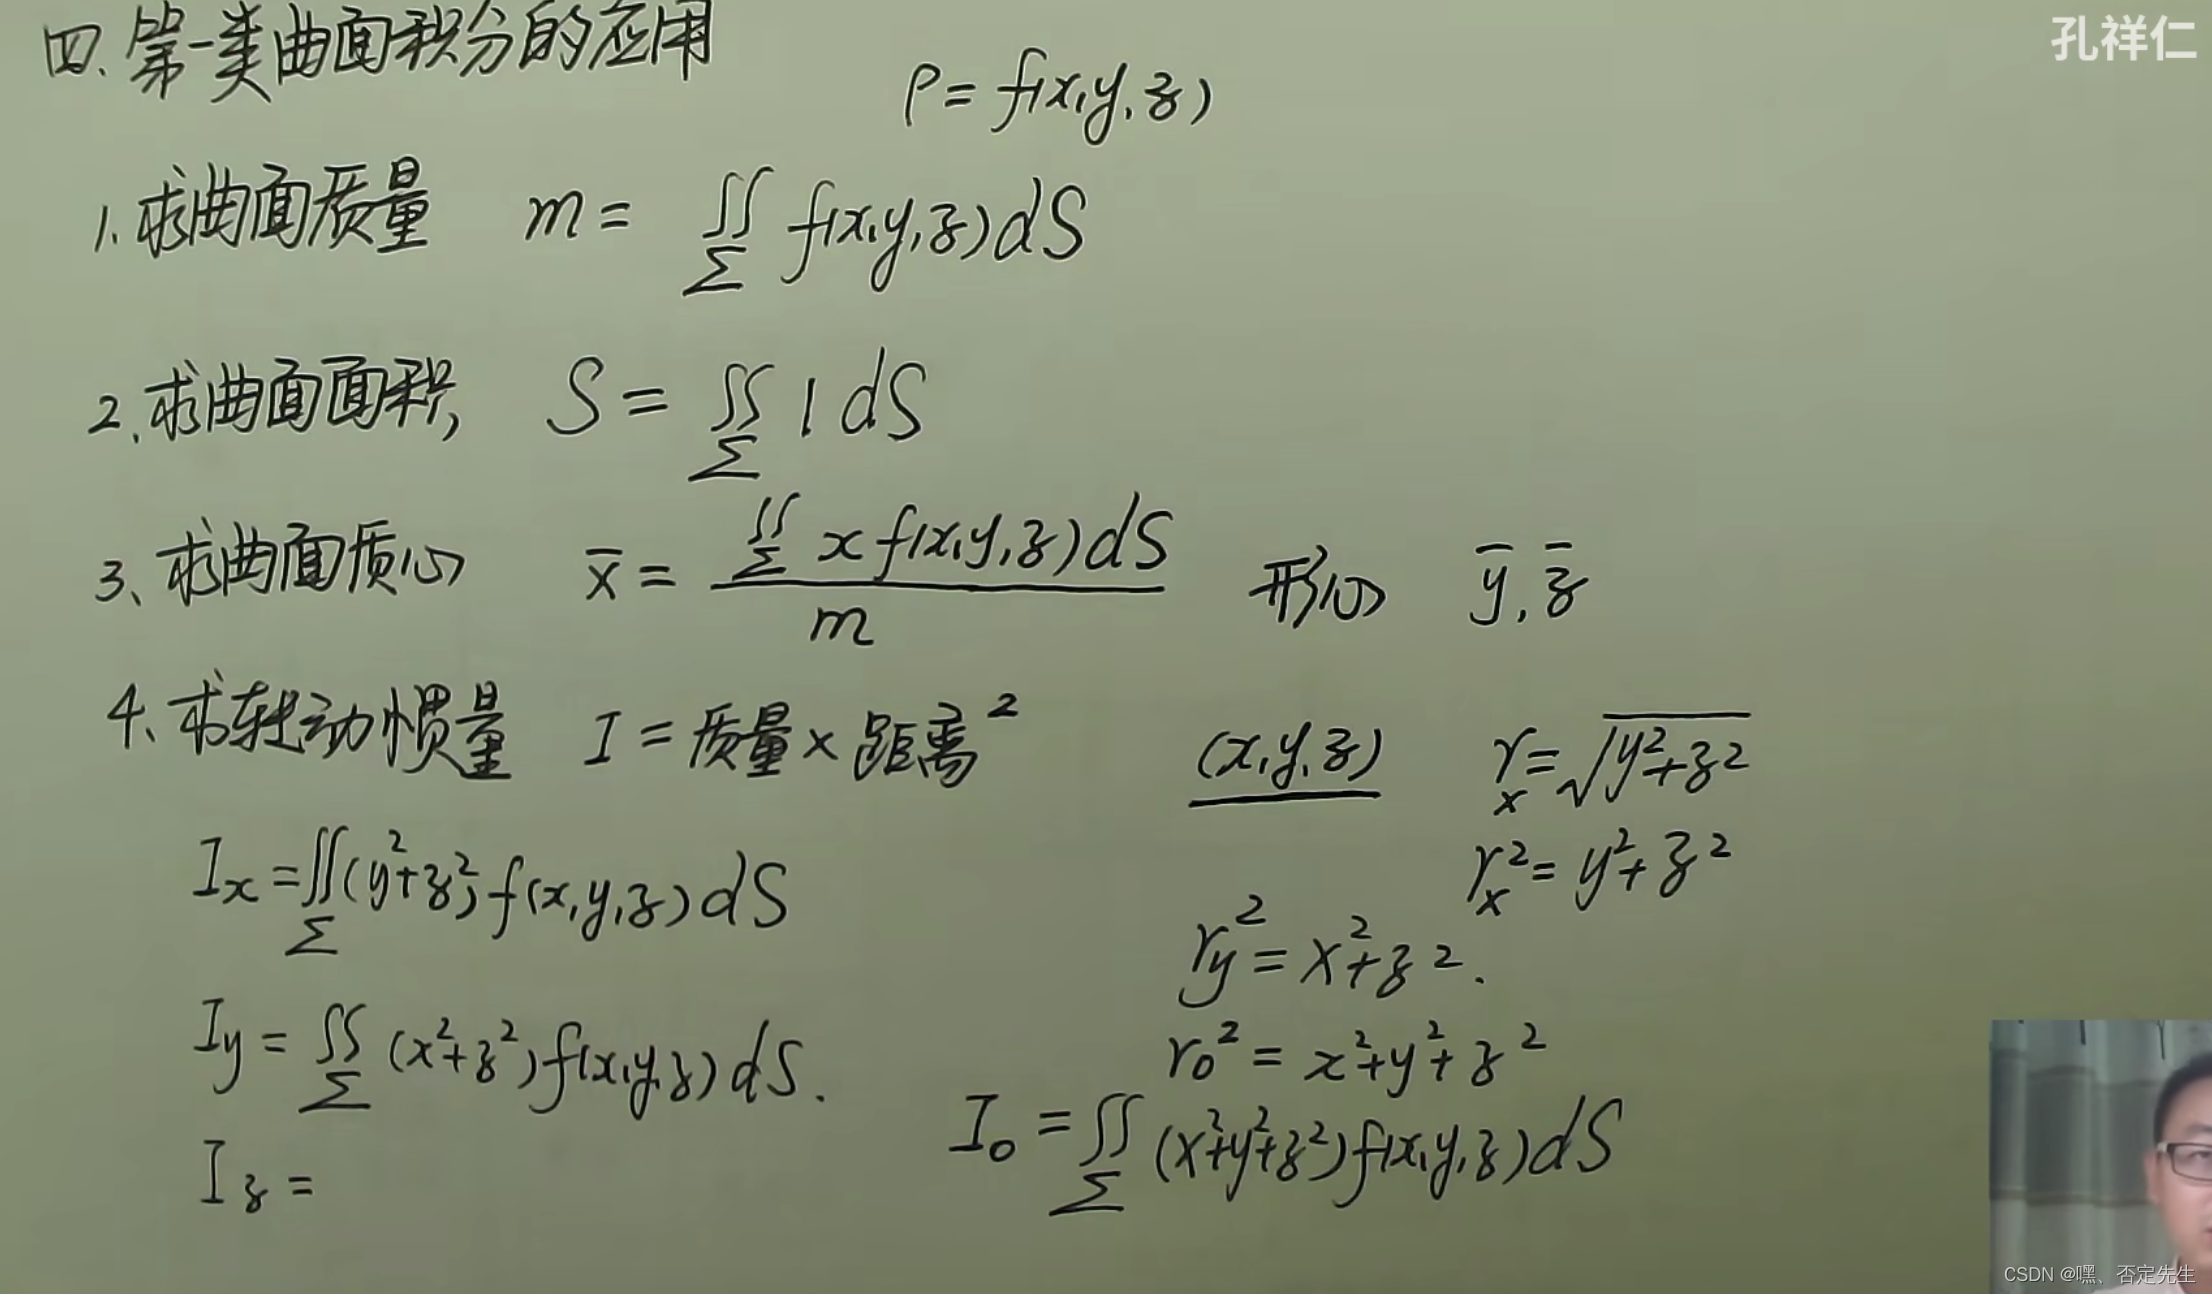 四. 第一类曲面积分的应用
孔祥仁
ρ = f(x,y,z)
1. 求曲面质量 m = ∬_Σ f(x,y,z)dS
2. 求曲面面积, S = ∬_Σ 1 dS
3、求曲面质心 x̄ = ∬_Σ x f(x,y,z)dS / m 形心 ȳ, z̄
4、求转动惯量 I = 质量 × 距离² (x,y,z) r_x = √(y²+z²)
r_x² = y²+z²
I_x = ∬_Σ (y²+z²) f(x,y,z)dS
r_y² = x²+z².
I_y = ∬_Σ (x²+z²)f(x,y,z)dS.
r_0² = x²+y²+z²
I_0 = ∬_Σ (x²+y²+z²)f(x,y,z)dS
I_z =
CSDN @嘿、否定先生